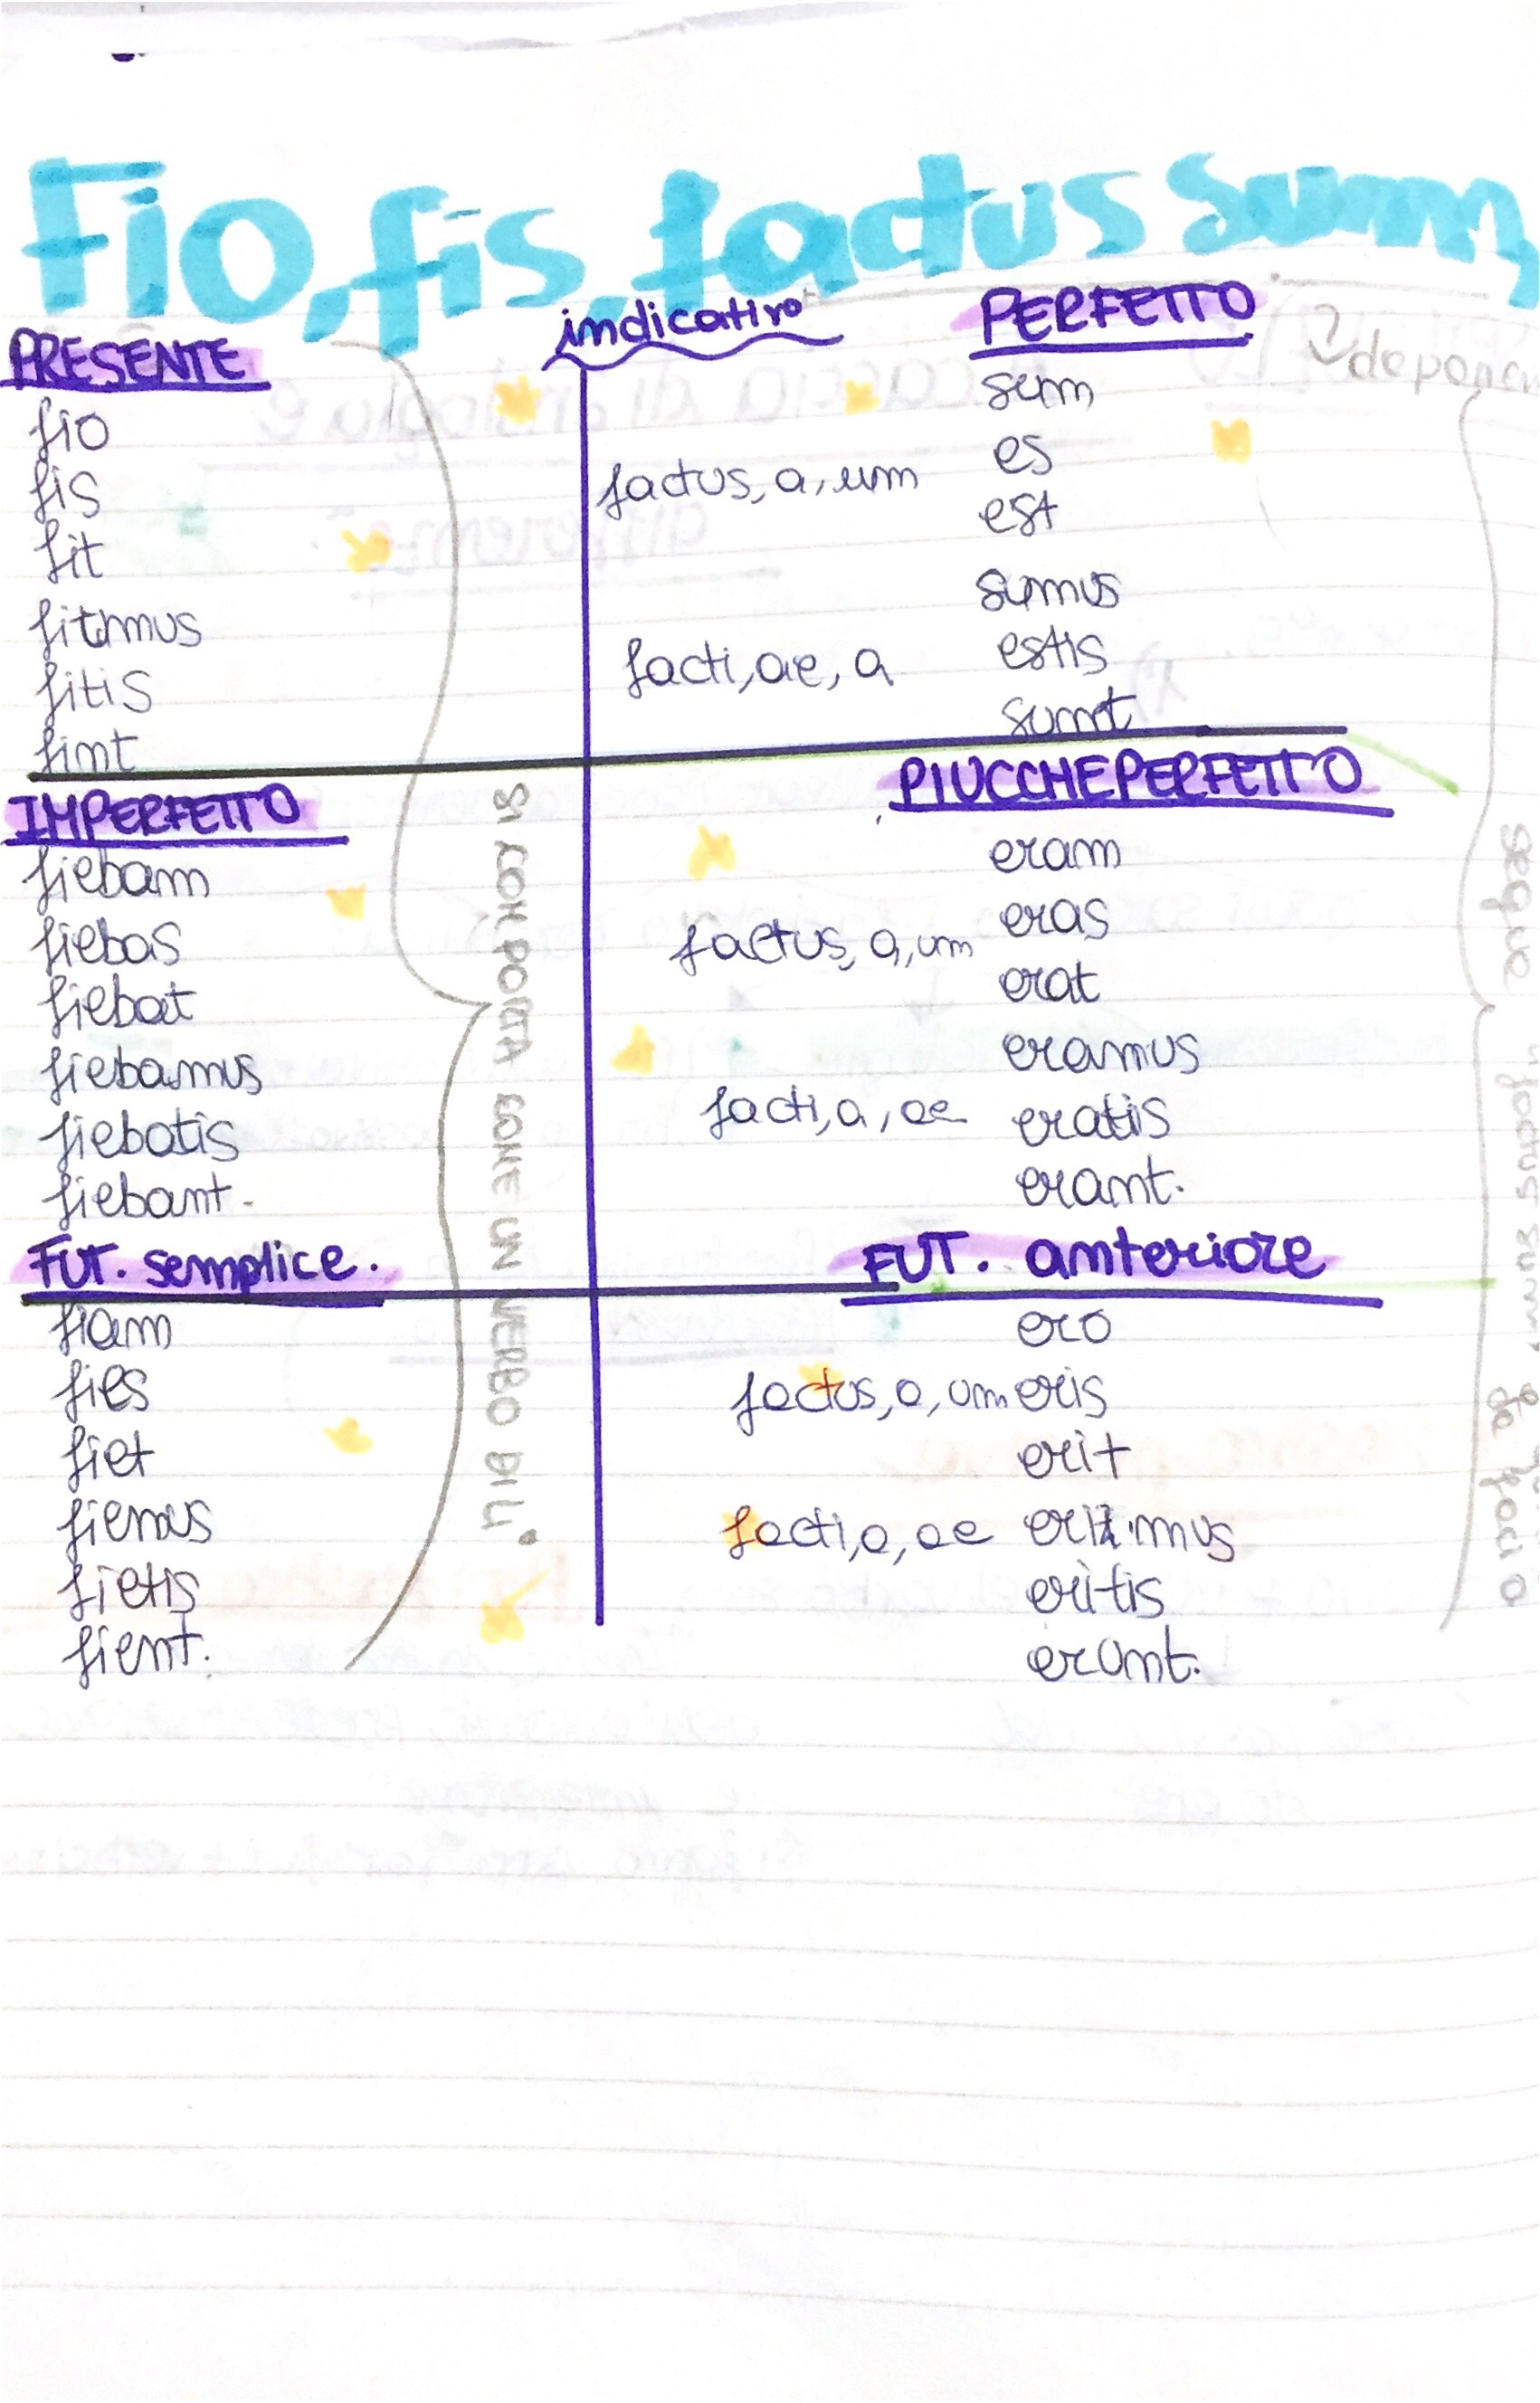 Fio, fis, factus sum,
indicativo
PRESENTE
fio
fis
fit
fitmus
fitis
fint
IMPERFETTO
fiebam
fiebas
fiebat
fiebamus
fiebatis
fiebant.
FUT. semplice.
fiam
fies
fiet
fiemus
fietis
fient.
SI COMPORTA COME UN VERBO DI 4°
PERFETTO
deponen
sum
es
factus, a, um
est
sumus
facti, ae, a
estis
sunt
PIUCCHEPERFETTO
eram
eras
factus, a, um
erat
eramus
facti, a, ae
eratis
erant.
FUT. anteriore
ero
factus, a, um eris
erit
facti, a, ae erimus
eritis
erunt.
segue "factus sum" da facio